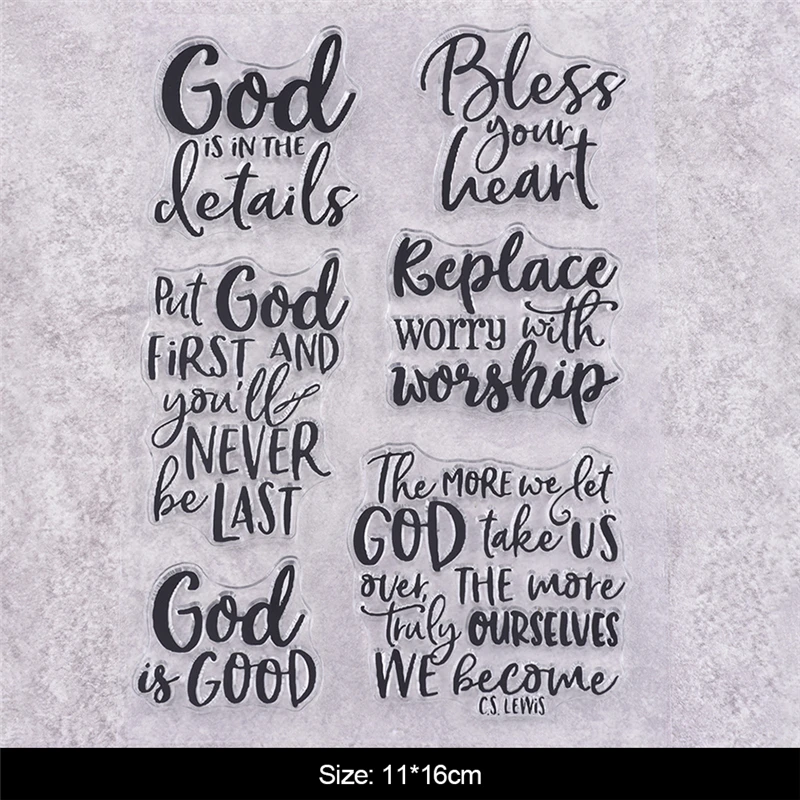 God
is iN THE
details
Bless
your
heart
Put God
FiRST AND
you'll
NEVER
be LAST
Replace
worry with
worship
God
is GOOD
The MORE we let
GOD take US
over, THE more
truly OURSELVES
WE become
C.S. LEWiS
Size: 11*16cm